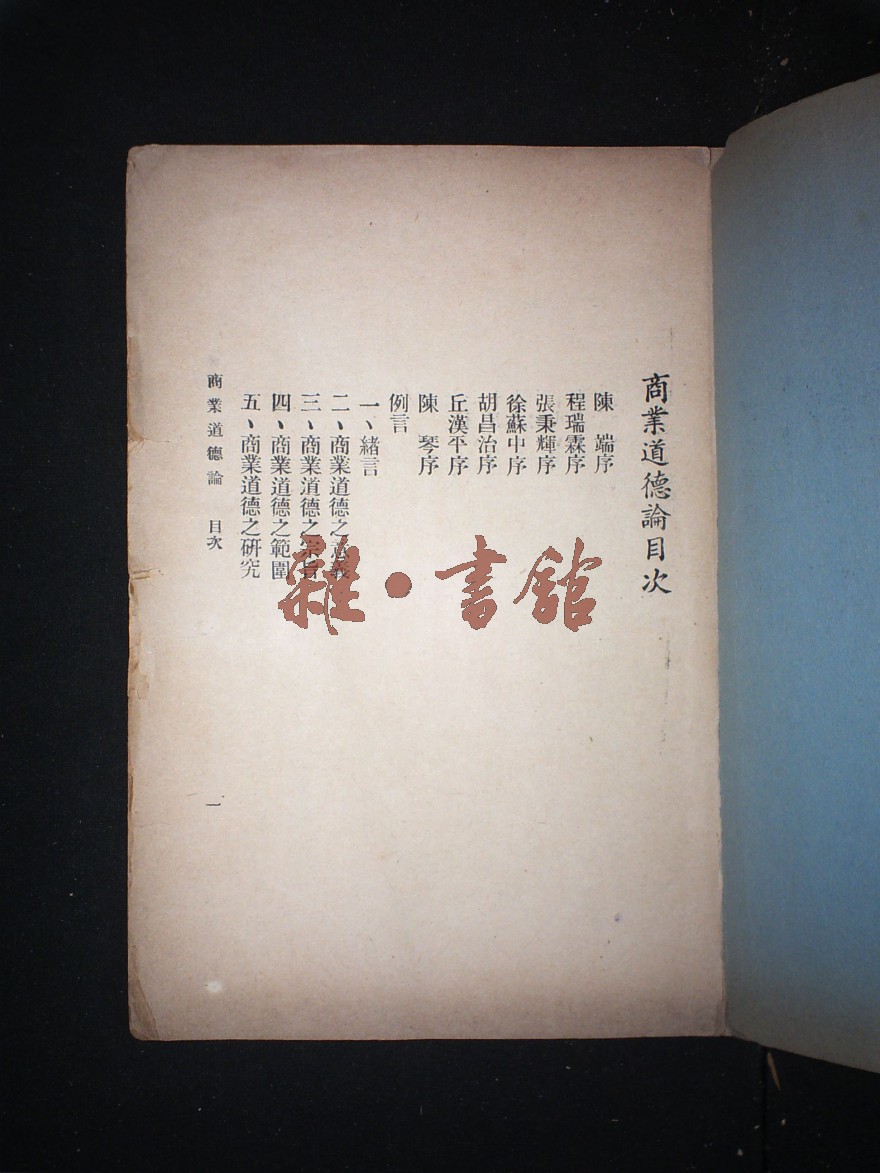 商業道德論目次
陳　端序
程瑞霖序
張秉輝序
徐蘇中序
胡昌治序
丘漢平序
陳　琴序
例言
一、緒言
二、商業道德之意義
三、商業道德之宗旨
四、商業道德之範圍
五、商業道德之研究
商業道德論　目次
一
雜·書館